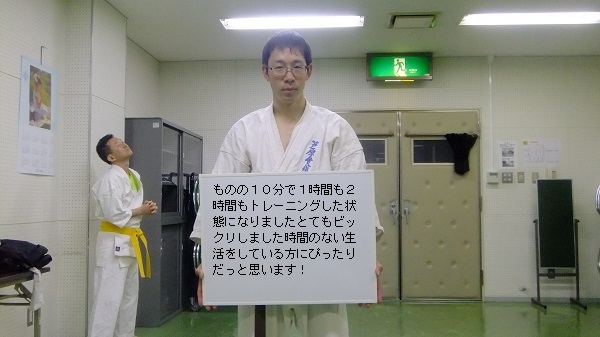 ものの１０分で１時間も２
時間もトレーニングした状
態になりましたとてもビッ
クリしました時間のない生
活をしている方にぴったり
だっと思います！